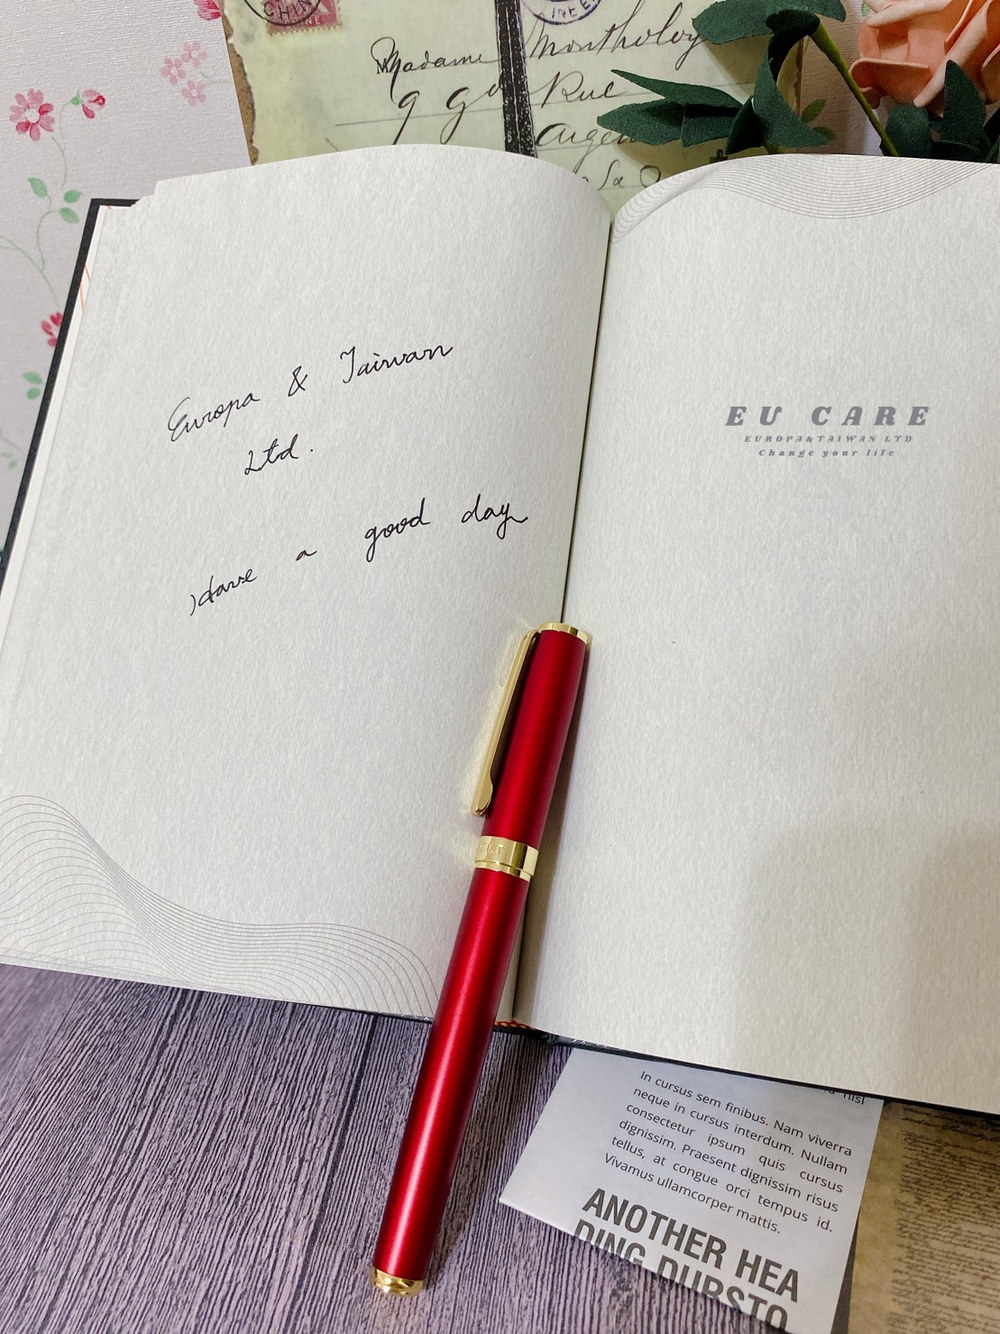 CHIN
Madame Montholoy
9 gd Rue
Europa & Taiwan
Ltd.
Have a good day
EU CARE
EUROPA&TAIWAN LTD
Change your life
nisl
In cursus sem finibus. Nam viverra
neque in cursus interdum. Nullam
consectetur ipsum quis cursus
dignissim. Praesent dignissim risus
tellus, at congue orci tempus id.
Vivamus ullamcorper mattis.
ANOTHER HEA
DING DURSTO